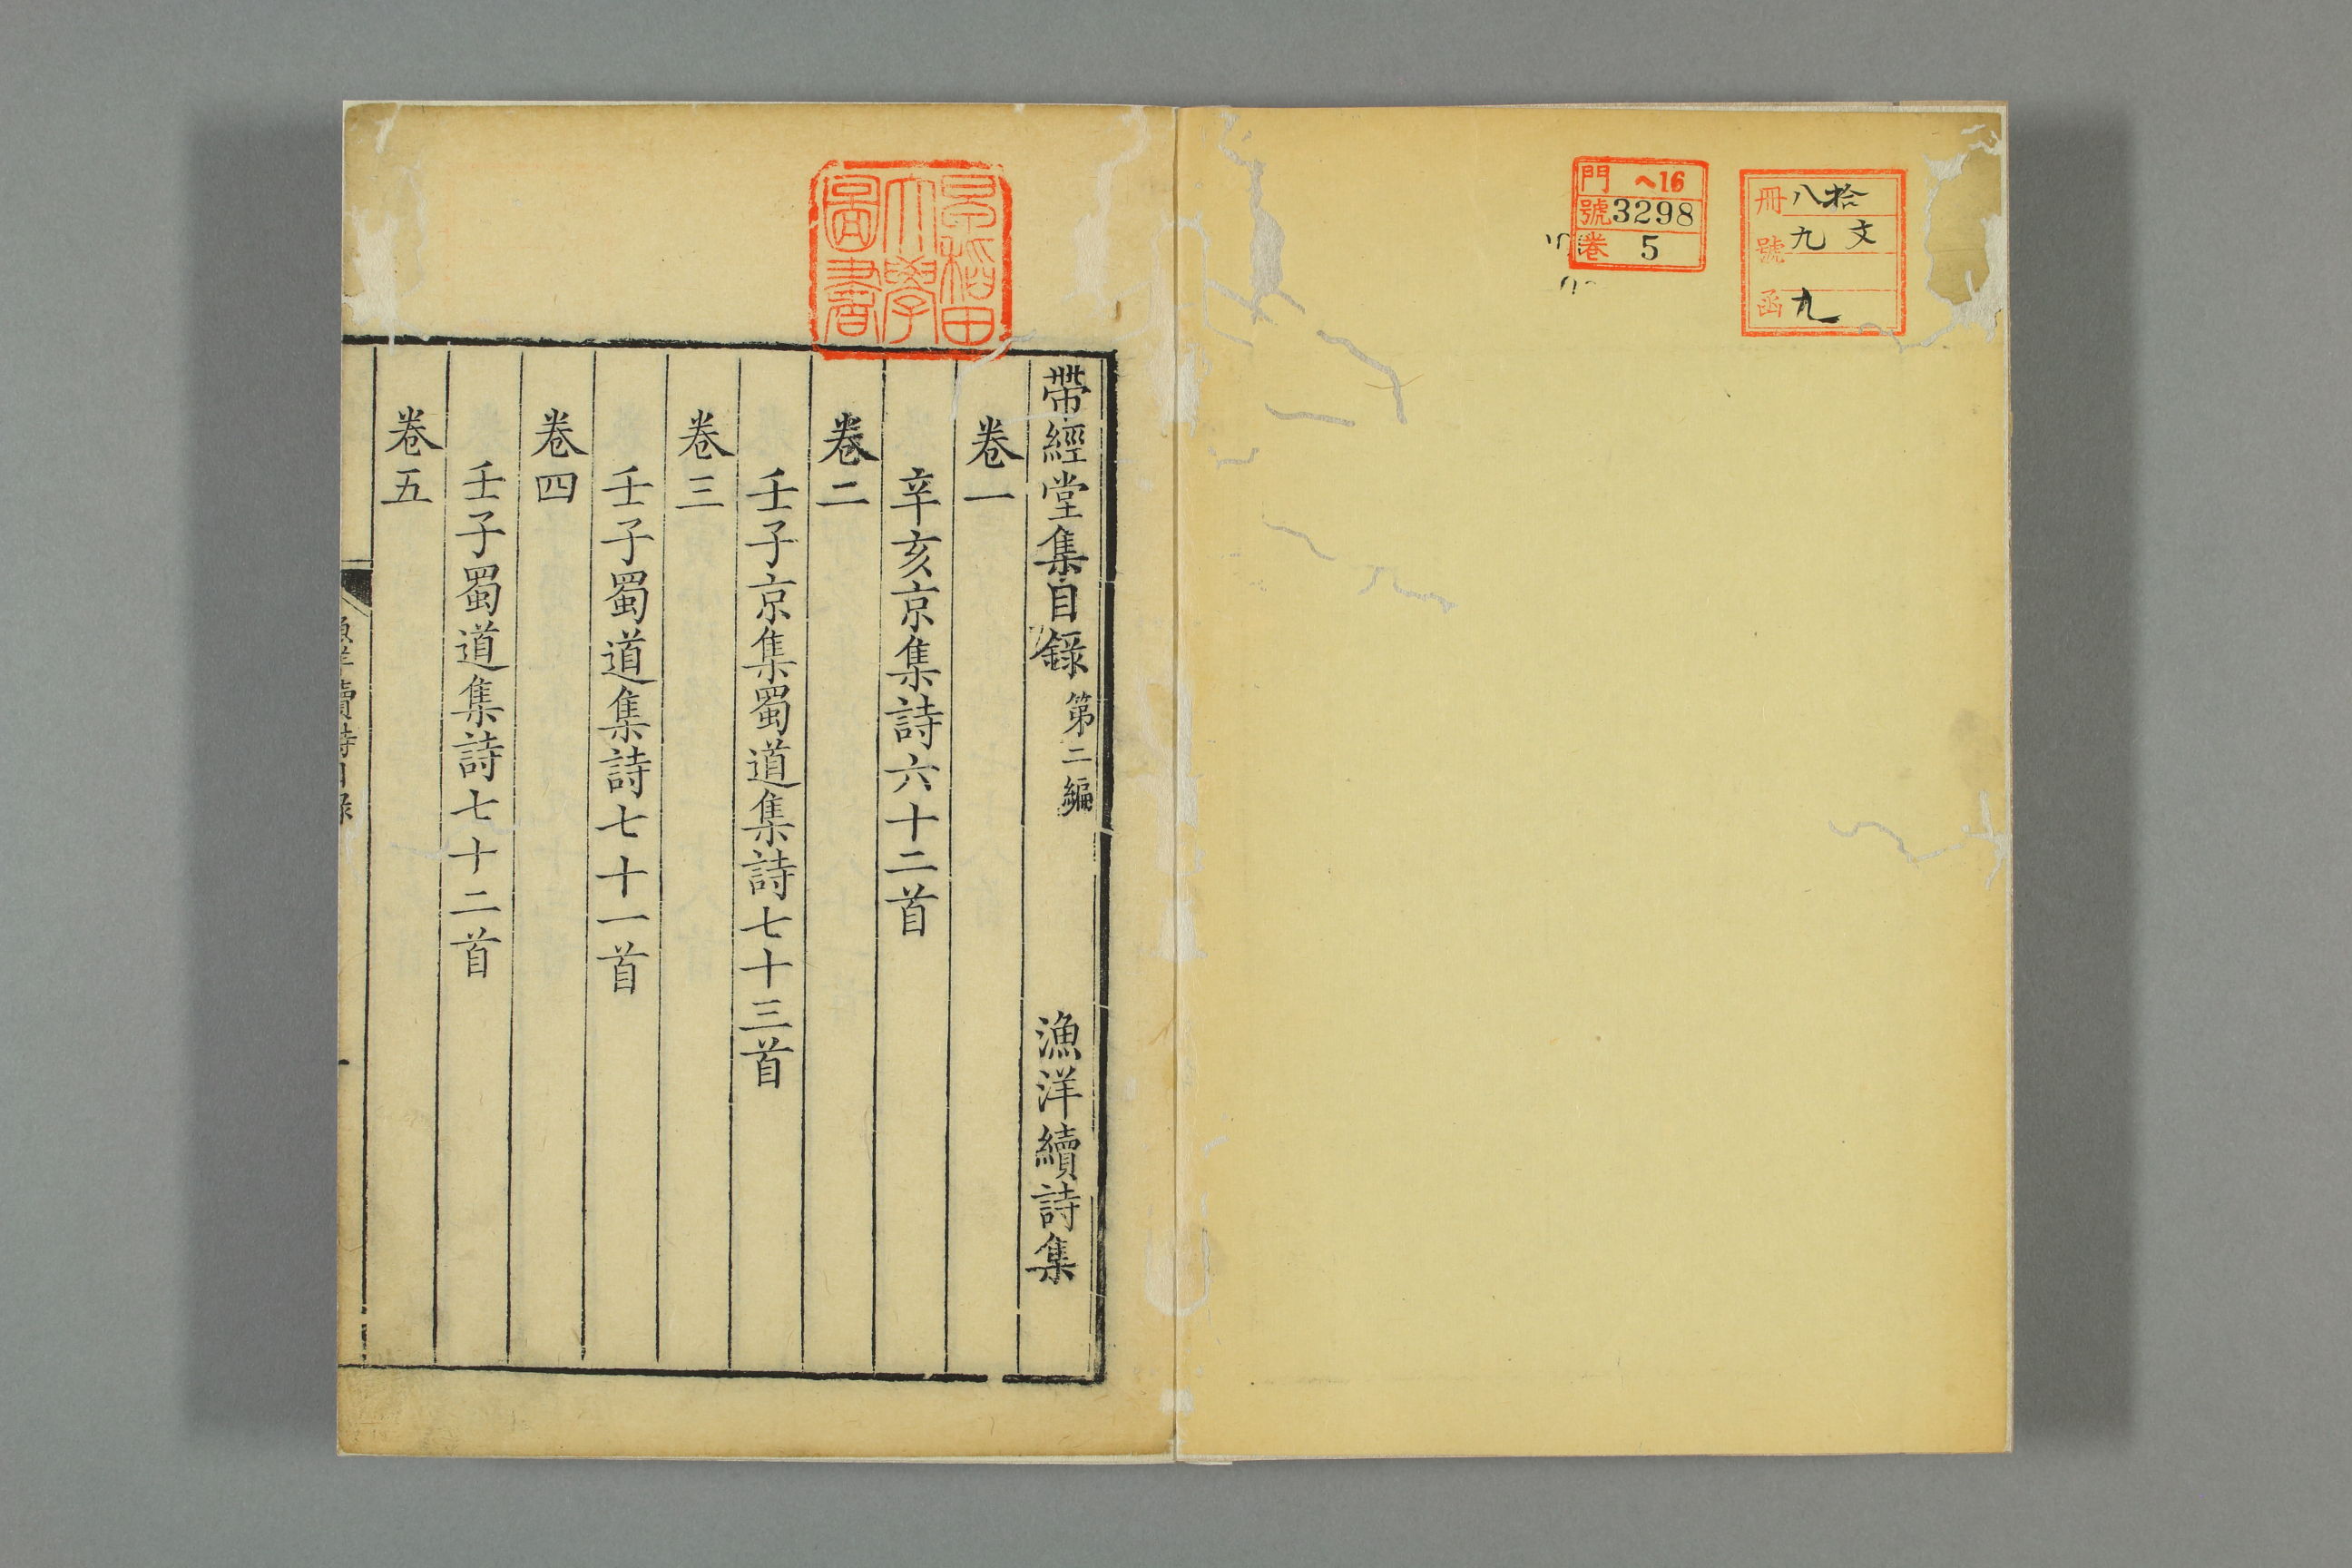 冊 八拾
號 九文
函 九
門 ヘ16
號 3298
卷 5
早稲田大學圖書
帶經堂集目錄 第二編 漁洋續詩集
卷一
辛亥京集詩六十二首
卷二
壬子京集蜀道集詩七十三首
卷三
壬子蜀道集詩七十一首
卷四
壬子蜀道集詩七十二首
卷五
漁洋續詩目錄
一